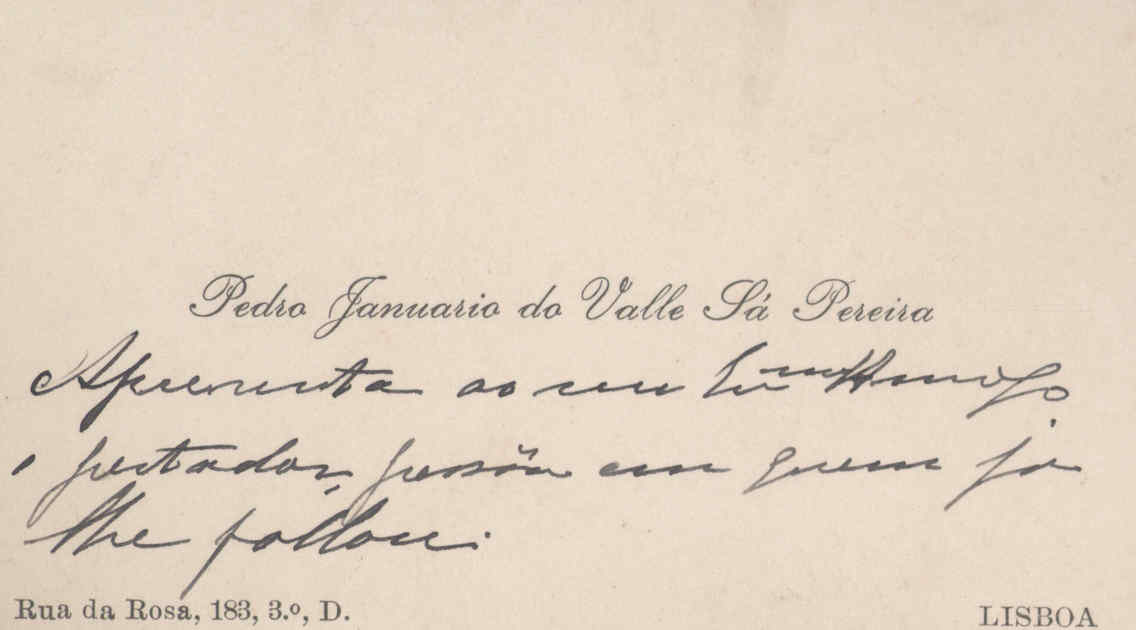 Pedro Januario do Valle Sá Pereira
Apresenta ao seu Exmo Amigo
o portador, pessôa em quem ja
lhe fallou.
Rua da Rosa, 183, 3.º, D.
LISBOA